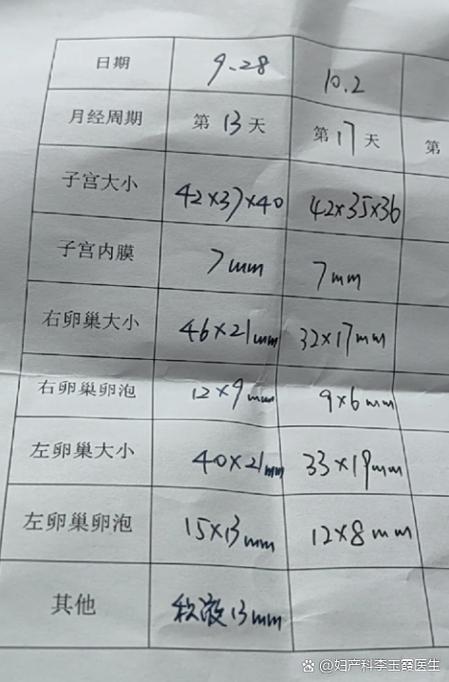 日期 9.28 10.2
月经周期 第13天 第17天 第
子宫大小 42×37×40 42×35×36
子宫内膜 7mm 7mm
右卵巢大小 46×21mm 32×17mm
右卵巢卵泡 12×9mm 9×6mm
左卵巢大小 40×21mm 33×19mm
左卵巢卵泡 15×13mm 12×8mm
其他 积液13mm
@妇产科李玉霞医生